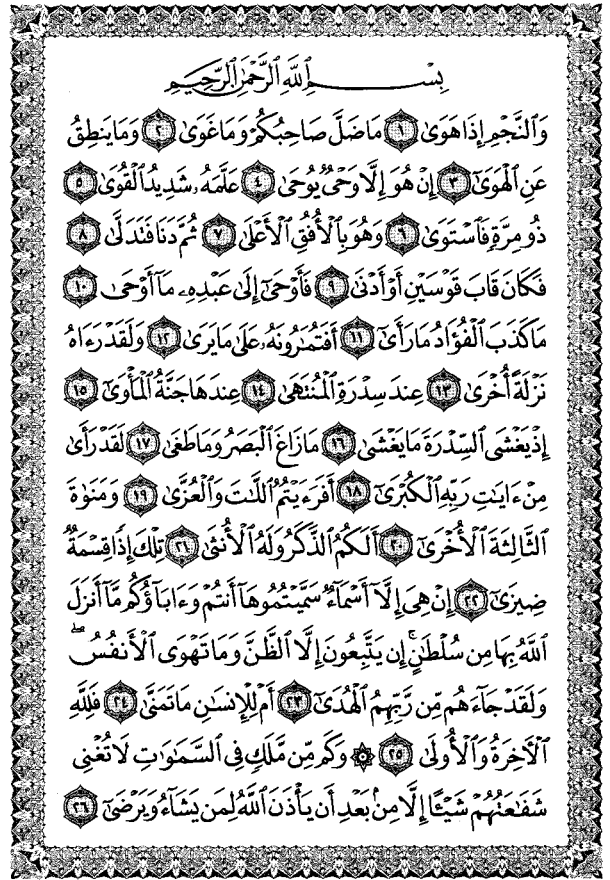 بِسْمِ ٱللَّهِ ٱلرَّحْمَٰنِ ٱلرَّحِيمِ
وَٱلنَّجْمِ إِذَا هَوَىٰ ١ مَا ضَلَّ صَاحِبُكُمْ وَمَا غَوَىٰ ٢ وَمَا يَنطِقُ
عَنِ ٱلْهَوَىٰٓ ٣ إِنْ هُوَ إِلَّا وَحْىٌ يُوحَىٰ ٤ عَلَّمَهُۥ شَدِيدُ ٱلْقُوَىٰ ٥
ذُو مِرَّةٍ فَٱسْتَوَىٰ ٦ وَهُوَ بِٱلْأُفُقِ ٱلْأَعْلَىٰ ٧ ثُمَّ دَنَا فَتَدَلَّىٰ ٨
فَكَانَ قَابَ قَوْسَيْنِ أَوْ أَدْنَىٰ ٩ فَأَوْحَىٰٓ إِلَىٰ عَبْدِهِۦ مَآ أَوْحَىٰ ١٠
مَا كَذَبَ ٱلْفُؤَادُ مَا رَأَىٰٓ ١١ أَفَتُمَٰرُونَهُۥ عَلَىٰ مَا يَرَىٰ ١٢ وَلَقَدْ رَءَاهُ
نَزْلَةً أُخْرَىٰ ١٣ عِندَ سِدْرَةِ ٱلْمُنتَهَىٰ ١٤ عِندَهَا جَنَّةُ ٱلْمَأْوَىٰٓ ١٥
إِذْ يَغْشَى ٱلسِّدْرَةَ مَا يَغْشَىٰ ١٦ مَا زَاغَ ٱلْبَصَرُ وَمَا طَغَىٰ ١٧ لَقَدْ رَأَىٰ
مِنْ ءَايَٰتِ رَبِّهِ ٱلْكُبْرَىٰٓ ١٨ أَفَرَءَيْتُمُ ٱللَّٰتَ وَٱلْعُزَّىٰ ١٩ وَمَنَوٰةَ
ٱلثَّالِثَةَ ٱلْأُخْرَىٰٓ ٢٠ أَلَكُمُ ٱلذَّكَرُ وَلَهُ ٱلْأُنثَىٰ ٢١ تِلْكَ إِذًا قِسْمَةٌ
ضِيزَىٰٓ ٢٢ إِنْ هِىَ إِلَّآ أَسْمَآءٌ سَمَّيْتُمُوهَآ أَنتُمْ وَءَابَآؤُكُم مَّآ أَنزَلَ
ٱللَّهُ بِهَا مِن سُلْطَٰنٍ ۚ إِن يَتَّبِعُونَ إِلَّا ٱلظَّنَّ وَمَا تَهْوَى ٱلْأَنفُسُ ۖ
وَلَقَدْ جَآءَهُم مِّن رَّبِّهِمُ ٱلْهُدَىٰٓ ٢٣ أَمْ لِلْإِنسَٰنِ مَا تَمَنَّىٰ ٢٤ فَلِلَّهِ
ٱلْأَخِرَةُ وَٱلْأُولَىٰ ٢٥ ۞ وَكَم مِّن مَّلَكٍ فِى ٱلسَّمَٰوَٰتِ لَا تُغْنِى
شَفَٰعَتُهُمْ شَيْـًٔا إِلَّا مِنۢ بَعْدِ أَن يَأْذَنَ ٱللَّهُ لِمَن يَشَآءُ وَيَرْضَىٰٓ ٢٦